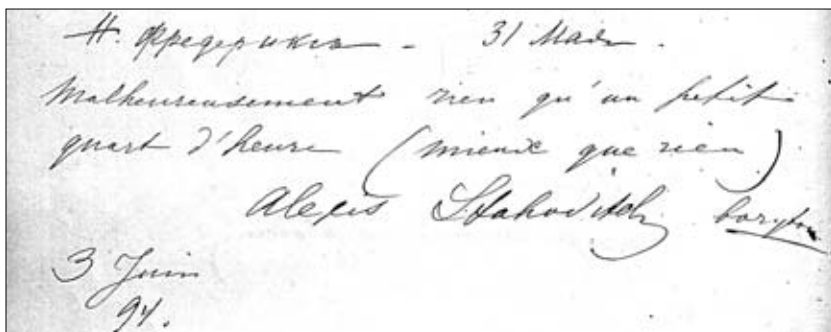 Н. Фредерикс - 31 Мая.
Malheureusement rien qu'un petit
quart d'heure (mieux que rien)
Alexis Stahovitch baryton
3 Juin
94.